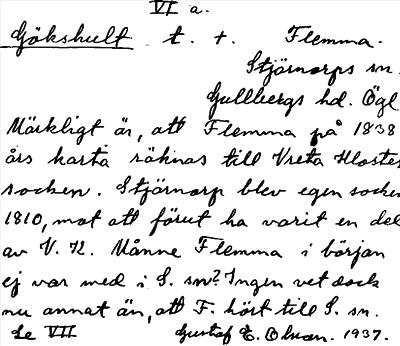 VI a.
Gökshult t. t. Flemma.
Stjärnorps sn.
Gullbergs hd. Ögl
Märkligt är, att Flemma på 1838
års karta räknas till Vreta Kloster
socken. Stjärnorp blev egen socken
1810, mot att förut ha varit en del
av V. K. Månne Flemma i början
ej var med i S. sn? Ingen vet dock
nu annat än, att F. hört till S. sn.
Se VII Gustaf E. Olsson. 1937.